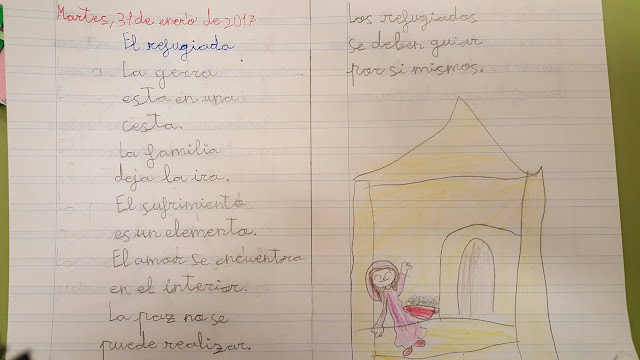 Martes, 31 de enero de 2017
El refugiada
La gerra
esta en una
cesta.
La familia
deja la ira.
El sufrimiento
es un elemento.
El amor se encuentra
en el interior.
La paz no se
puede realizar.
Los refugiados
se deben guiar
por si mismos.